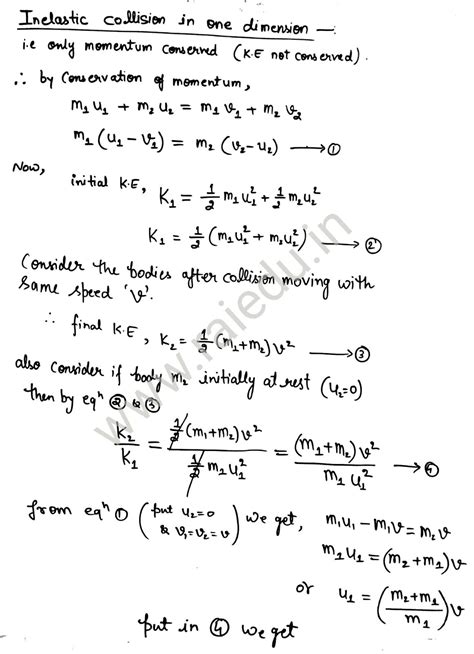 Inelastic collision in one dimension —:
i.e only momentum conserved (K.E not conserved).
∴ by conservation of momentum,
m₁u₁ + m₂u₂ = m₁v₁ + m₂v₂
m₁(u₁ − v₁) = m₂(v₂ − u₂) ⟶ ①
Now,
initial K.E, K₁ = 1/2 m₁u₁² + 1/2 m₂u₂²
K₁ = 1/2 (m₁u₁² + m₂u₂²) ⟶ ②
Consider the bodies after collision moving with
same speed 'v'.
∴ final K.E, K₂ = 1/2 (m₁+m₂)v² ⟶ ③
also consider if body m₂ initially at rest (u₂=0)
then by eqⁿ ② & ③
K₂/K₁ = 1/2 (m₁+m₂)v² / 1/2 m₁u₁² = (m₁+m₂)v² / m₁u₁² ⟶ ④
from eqⁿ ① (put u₂=0 & v₁=v₂=v) we get, m₁u₁ − m₁v = m₂v
m₁u₁ = (m₂+m₁)v
or u₁ = ((m₂+m₁)/m₁) v
put in ④ we get
www.raiedu.in